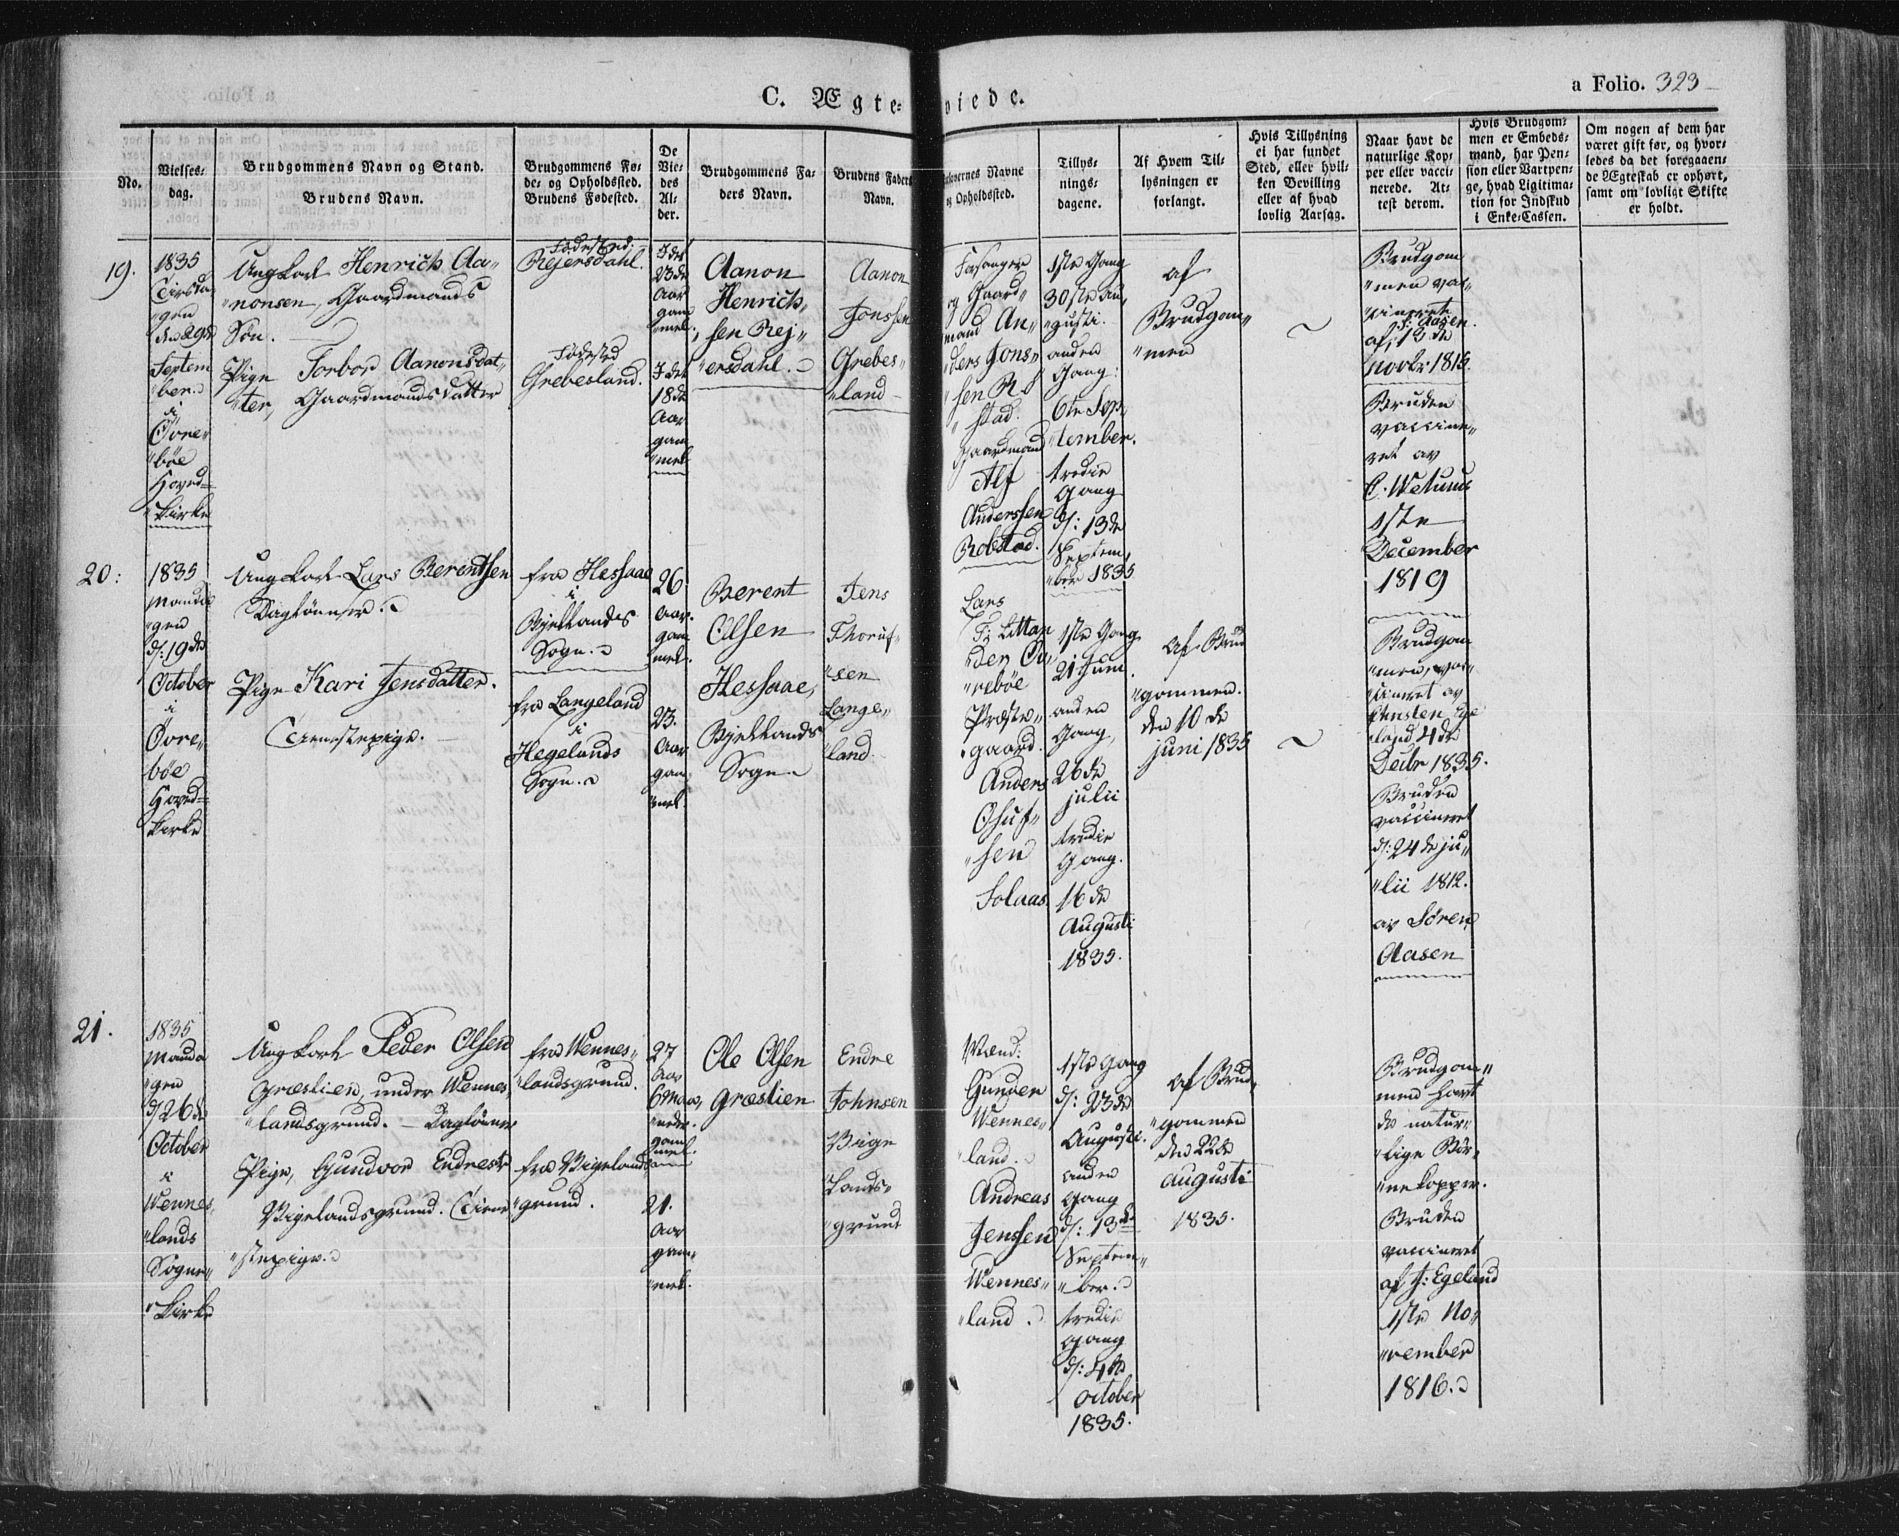 C. Ægte=
viede.
a Folio. 323
No.
Vielses-
dag.
Brudgommens Navn og Stand.
Brudens Navn.
Brudgommens Fø-
de- og Opholdssted.
Brudens Fødested.
De
Vie-
des
Al-
der.
Brudgommens Fa-
ders Navn.
Brudens Faders
Navn.
Forlovernes Navne
og Opholdssted.
Tillys-
nings-
dagene.
Af Hvem Til-
lysningen er
forlangt.
Hvis Tillysning
ei har fundet
Sted, eller hvil-
ken Bevilling
eller af hvad
lovlig Aarsag.
Naar havt de
naturlige Kop-
per eller vacci-
nerede. At-
test derom.
Hvis Brudgom-
men er Embeds-
mand, har Pen-
sion eller Vartpen-
ge, hvad Ligitima-
tion for Indskud
i Enke-Cassen.
Om nogen af dem har
været gift før, og hvor-
ledes da det foregaaen-
de Ægteskab er ophørt,
samt om lovligt Skifte
er holdt.
19.
1835
Tirsda-
"gen
den 29de
Septem
"ber
i
Øvre-
"bøe
Hoved=
"Kirke
Ungkarl Henrich Aa-
"nonsen, Gaardmands
Søn.
Pige Torbor Aanonsdat-
"ter, Gaardmandsdatter
Fødested:
Rejersdahl.
Fødested
Grebesland.
I det
23de
Aar
gam
"mel,
I det
18de
Aar
gam
"mel
Aanon
Henrich,
sen Rej-
"ersdahl.
Aanon
Jonssen
Grebes-
"land
Forsanger
og Gaard-
mand An-
ders Jons-
"sen
"stad.
Gaardmand
Alf
Anderssen
Robstad.
1ste Gang
30ste Au,
"gusti.
anden
Gang:
6te Sep,
"tember.
tredie
Gang
d: 13de
Septem,
"ber 1835
af
Brudgom-
"men
~
Brudgom
"men vac-
"cineret
S: Aasen.
af, 12de
novbr 1815.
Bruden
vaccine-
ret av
C: Wetuus
1ste
December
1819
20:
1835
Manda
"gen
d: 19de
October
i
Øvre-
bøe
Hoved=
Kirke
Ungkarl Lars Berentsen
Daglønner.
Pige Kari Jensdatter.
Tienestepige.
fra Hessaae
i
Bjellands
Sogn.
fra Langeland
i
Hegelands
Sogn.
26
Aar
gam
mel.
23.
Aar
gam
"mel.
Berent
Olsen
Hessaae,
Bjellands
Sogn
Jens
Thoruf-
"sen
Lange-
"land.
Lars
den Øv,
"rebøe
Præste-
"gaard.
Anders
Osuf-
"sen
Solaas.
1ste Gang
21 Juni
anden
Gang,
26de
julii
tredie
Gang.
16de
Augusti
1835.
af Brud
"gommen.
den 10de
juni 1835
~
Brudgom
"men, vac-
"cineret av
Christen Ege
"land 4de
Decbr 1835.
Bruden
vaccineret
d: 24de ju-
"lii 1812.
av Søren
Aasen
21.
1835
Manda
"gen
d: 26de
October
i
Wennes,
"lands
Sogne-
"Kirke
Ungkarl Peder Olsen
Græslien, under Wennes,
"landsgrund. — Daglønner
Pige, Gundvor Endrest
Vigelandsgrund. Tiene
"stepige.
fra Wennes-
"landsgrund.
fra Vigelands
"grund.
27
Aar
6 Maa,
"neder
gam
mel.
21.
Aar
gam-
"mel.
Ole Olsen
Græslien
Endre
Johnsen
Vige
"lands-
"grund
Gunder
Wennes-
"land.
Andreas
Jenssen
Wennes-
"land.
1ste Gang
d: 23de
Augusti.
anden
Gang
d: 13de
Septem-
"ber.
tredie
Gang
d: 4de
October
1835.
af Brud,
"gommen
den 22de
augusti
1835.
Brudgom-
men havt
de natur-
"lige Bør-
"nekopper.
Bruden
vaccineret
af T: Egeland
1ste No-
"vember
1816.